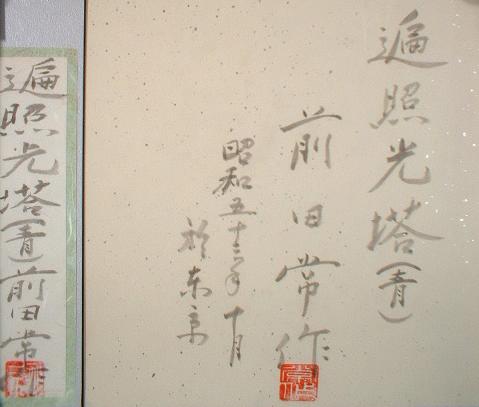 遍照光塔(青)
前田常作
昭和五十三年 十月
於東京
遍照光塔(青)前田常作